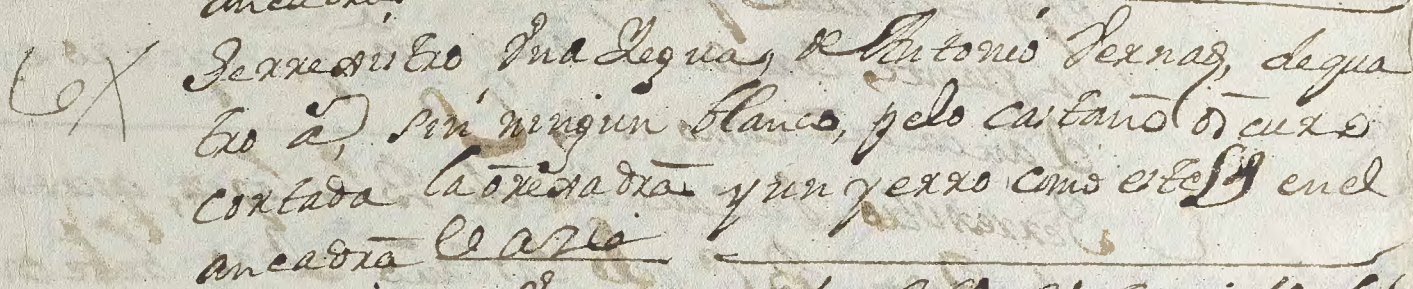 Serrexistro Vna Yegua, de Antonio Vernaq, dequa
tro a, sin ningun blanco, pelo castano oscuro
cortada laorexa dra y un yerro como este en el
anca dra